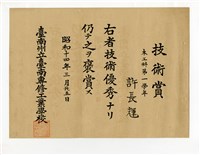 技術賞
木工科第一學年
許長廷
右者技術優秀ナリ
仍テ之ヲ褒賞ス
昭和十四年三月廿五日
臺南州立臺南專修工業學校